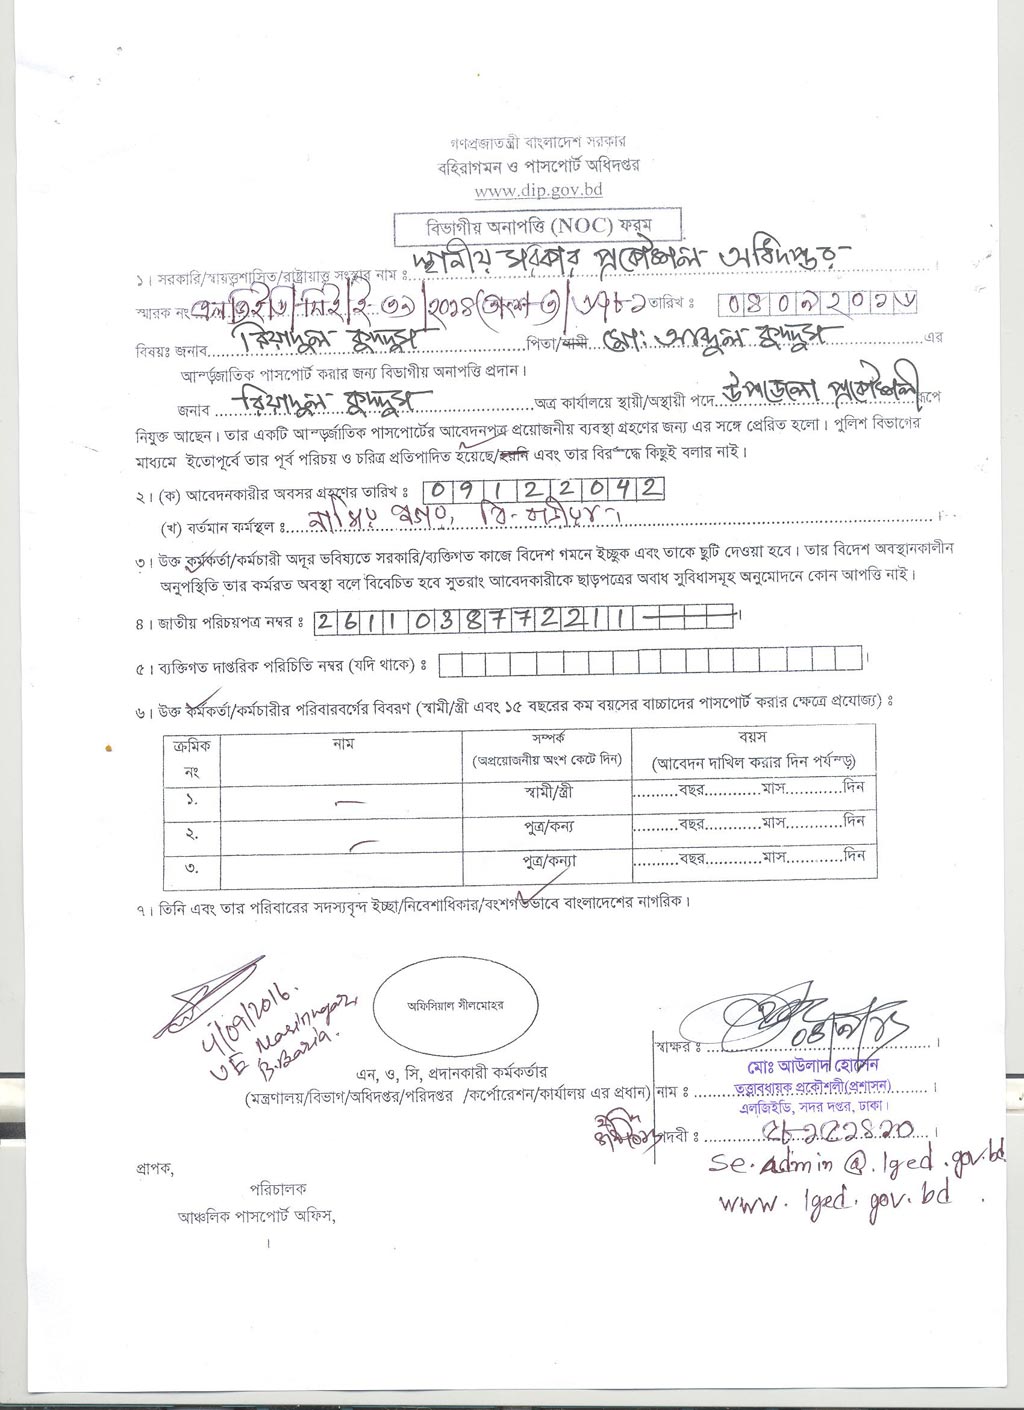 গণপ্রজাতন্ত্রী বাংলাদেশ সরকার
বহিরাগমন ও পাসপোর্ট অধিদপ্তর
www.dip.gov.bd
বিভাগীয় অনাপত্তি (NOC) ফরম
১। সরকারি/স্বায়ত্তশাসিত/রাষ্ট্রায়াত্ত সংস্থার নাম : স্থানীয় সরকার প্রকৌশল অধিদপ্তর
স্মারক নং এলজিইডি/সিই/ই-৩১/২০১৪ তারিখ :
বিষয়: জনাব রিয়াদুল কুদ্দুস পিতা/স্বামী মো: আব্দুল কুদ্দুস এর
আর্ন্তজাতিক পাসপোর্ট করার জন্য বিভাগীয় অনাপত্তি প্রদান।
জনাব রিয়াদুল কুদ্দুস অত্র কার্যালয়ে স্থায়ী/অস্থায়ী পদে উপজেলা প্রকৌশলী রূপে
নিযুক্ত আছেন। তার একটি আর্ন্তজাতিক পাসপোর্টের আবেদনপত্র প্রয়োজনীয় ব্যবস্থা গ্রহণের জন্য এর সঙ্গে প্রেরিত হলো। পুলিশ বিভাগের
মাধ্যমে ইতোপূর্বে তার পূর্ব পরিচয় ও চরিত্র প্রতিপাদিত হয়েছে/হয়নি এবং তার বিরুদ্ধে কিছুই বলার নাই।
২। (ক) আবেদনকারীর অবসর গ্রহণের তারিখ : 09122042
(খ) বর্তমান কর্মস্থল :
৩। উক্ত কর্মকর্তা/কর্মচারী অদূর ভবিষ্যতে সরকারি/ব্যক্তিগত কাজে বিদেশ গমনে ইচ্ছুক এবং তাকে ছুটি দেওয়া হবে। তার বিদেশ অবস্থানকালীন
অনুপস্থিতি তার কর্মরত অবস্থা বলে বিবেচিত হবে সুতরাং আবেদকারীকে ছাড়পত্রের অবাধ সুবিধাসমূহ অনুমোদনে কোন আপত্তি নাই।
৪। জাতীয় পরিচয়পত্র নম্বর : 2611038772211
৫। ব্যক্তিগত দাপ্তরিক পরিচিতি নম্বর (যদি থাকে) :
৬। উক্ত কর্মকর্তা/কর্মচারীর পরিবারবর্গের বিবরণ (স্বামী/স্ত্রী এবং ১৫ বছরের কম বয়সের বাচ্চাদের পাসপোর্ট করার ক্ষেত্রে প্রযোজ্য) :
ক্রমিক নং নাম সম্পর্ক (অপ্রয়োজনীয় অংশ কেটে দিন) বয়স (আবেদন দাখিল করার দিন পর্যন্ত)
১. স্বামী/স্ত্রী ..........বছর............মাস............দিন
২. পুত্র/কন্য ..........বছর............মাস............দিন
৩. পুত্র/কন্যা ..........বছর............মাস............দিন
৭। তিনি এবং তার পরিবারের সদস্যবৃন্দ ইচ্ছা/নিবেশাধিকার/বংশগতভাবে বাংলাদেশের নাগরিক।
4/09/2016.
UE Nasirnagar
B.Baria.
অফিসিয়াল সীলমোহর
স্বাক্ষর :
এন, ও, সি, প্রদানকারী কর্মকর্তার
(মন্ত্রণালয়/বিভাগ/অধিদপ্তর/পরিদপ্তর /কর্পোরেশন/কার্যালয় এর প্রধান) নাম :
মোঃ আউলাদ হোসেন
তত্ত্বাবধায়ক প্রকৌশলী(প্রশাসন)
এলজিইডি, সদর দপ্তর, ঢাকা।
পদবী :
se.admin@.lged.gov.bd
www.lged.gov.bd
প্রাপক,
পরিচালক
আঞ্চলিক পাসপোর্ট অফিস,
।